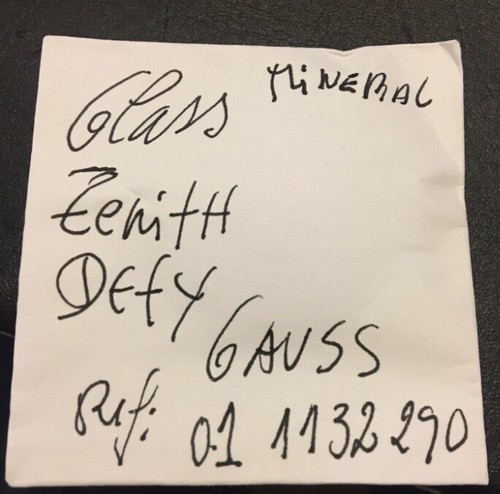 Glass MINERAL
ZenitH
DEfy
GAUSS
Ref: 01 1132 290